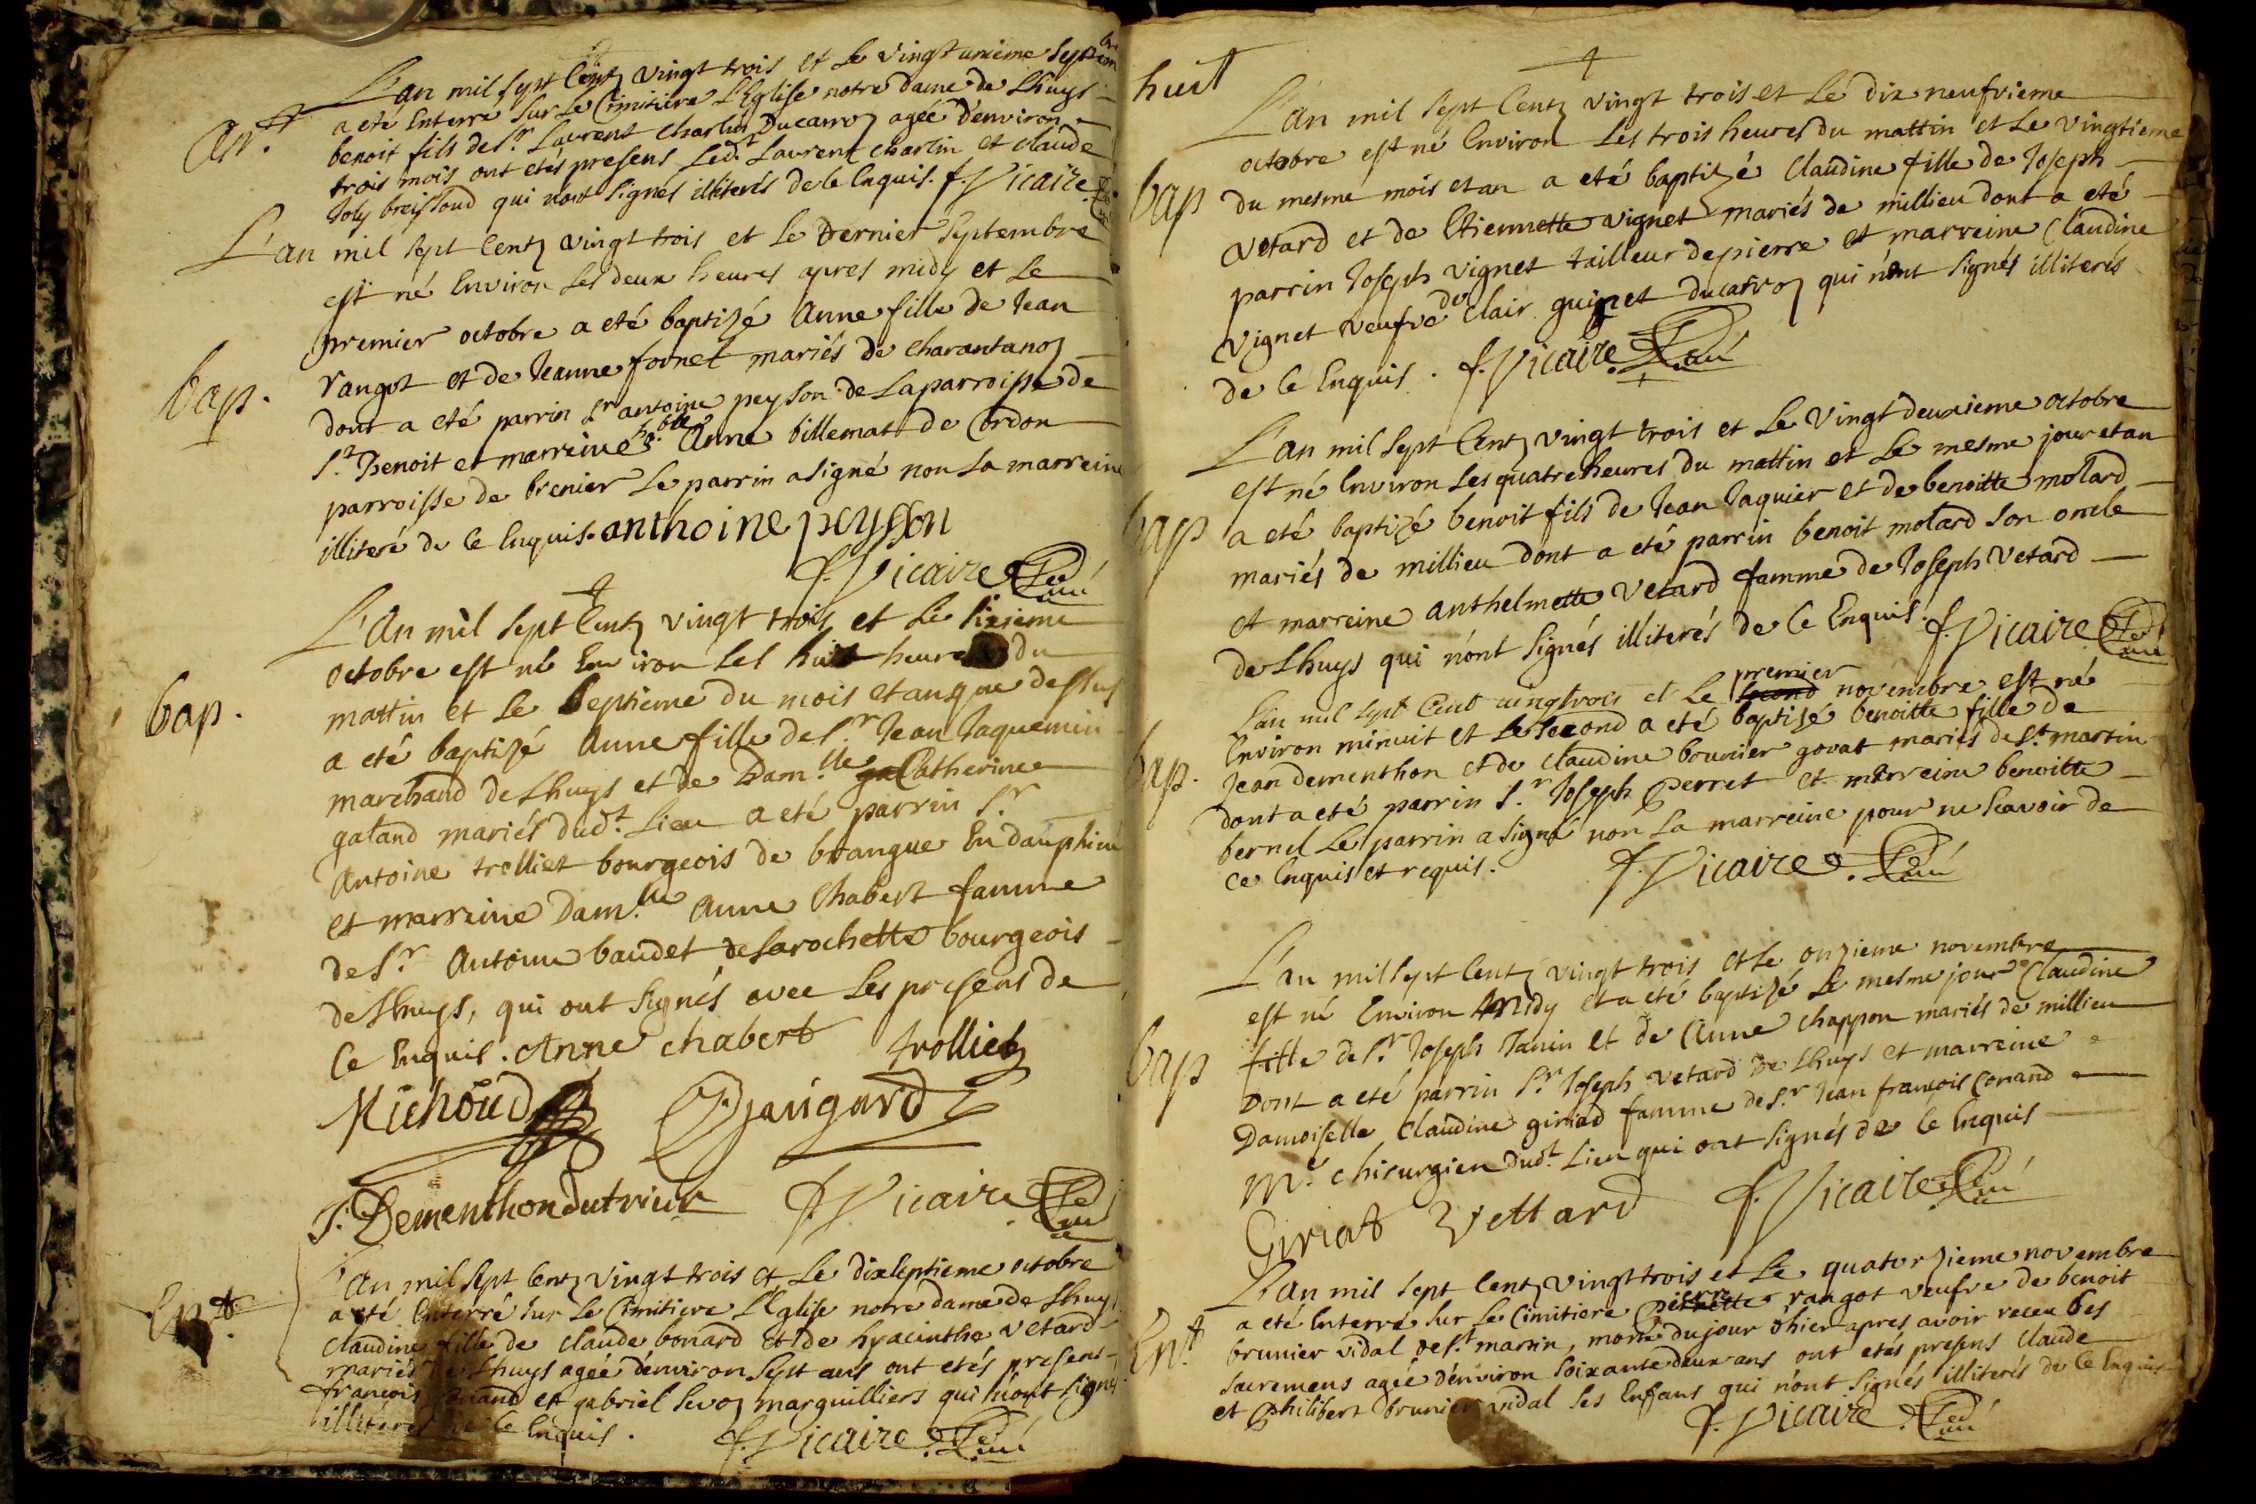 L'an mil sept Centz vingt trois et le vingt unieme septembre
Entt. a eté Enterré sur le Cimitiere L'Eglise notre dame de Lhuys
benoit fils de Sr. Laurent Charlin Ducarroz agée d'environ
trois mois ont etés presens led.t Laurent charlin et claude
Joly breissoud qui n'ont signés illiterés de le Enquis. f. Vicaire
L'an mil sept Centz vingt trois et le Dernier Septembre
est né Environ les deux heures apres midy et le
premier octobre a eté baptizé Anne fille de Jean
bap. rangot et de Jeanne fornet mariés de charantanoz
dont a eté parrin Sr antoine peyson de La parroisse de
St. Benoit et marreine ho.ble Anne billemat de Cordon
parroisse de brenier le parrin a signé non la marreine
illiteré de ce Enquis. anthoine peysson
f. Vicaire
L'An mil sept Centz vingt trois et le sixieme
octobre est né Environ les huit heures du
mattin et le septieme du mois et an que dessus
bap. a eté baptizé Anne fille de Sr. Jean Jaquemin
marchand de Lhuys et de Dam.lle ga Catherine
galand mariés dud.t Lieu a eté parrin Sr
Antoine trolliet bourgeois de brangue En dauphiné
et marreine Dam.lle Anne Chabert famme
de Sr. Antoine baudet de Larochette bourgeois
de Lhuys, qui ont signés avec les presens de
Ce Enquis. Anne chabert trollietz
Michoud Djaugard
J. Dementhon dutrieur f. Vicaire
L'an mil sept Centz vingt trois et Le dixseptieme octobre
Ent.t a eté Enterré sur Le Cimitiere L'Eglise notre dame de Lhuys
Claudine fille de claude bonard et de hyacinthe vetard
mariés de Lhuys agée d'environ sept ans ont etés presens
francois Conand et gabriel sevoz marguilliers qui n'ont signés
illiterés de le Enquis. f. Vicaire
huit
L'an mil sept Centz vingt trois et Le dix neufvieme
octobre est né Environ Les trois heures du mattin et Le vingtieme
bap du mesme mois et an a eté baptizé Claudine fille de Joseph
vetard et de Etiennette vignet mariés de millieu dont a eté
parrin Joseph vignet tailleur de pierre et marreine Claudine
vignet veufve de clair guinet ducatroz qui n'ont signés illiterés
de ce Enquis. f. Vicaire
L'an mil sept Centz vingt trois et Le Vingt deuxieme octobre
est né Environ Les quatre heures du mattin et Le mesme jour et an
bap a eté baptizé benoit fils de Jean Jaquier et de benoitte molard
mariés de millieu dont a eté parrin benoit molard son oncle
et marreine anthelmette vetard famme de Joseph Vetard
de Lhuys qui n'ont signés illiterés de Ce Enquis. f. Vicaire
premier
L'an mil sept Cent vingtrois et Le second novembre est né
Environ minuit et Le second a eté baptizé benoitte fille de
bap. Jean dementhon et de claudine brunier govat mariés de St. martin
dont a eté parrin Sr. Joseph Perret et marreine benoitte
bernel Le parrin a signé non La marreine pour ne scavoir de
ce Enquis et requis. f. Vicaire
L'an mil sept Centz vingt trois et Le onzieme novembre
est né Environ midy et a eté baptizé Le mesme jour Claudine
bap fille de Sr Joseph Janin et de Anne chappon mariés de millieu
Dont a eté parrin Sr. Joseph vetard de Lhuys et marreine
Damoiselle Claudine giriad famme de Sr Jean francois Conand
Mr. chirurgien dud.t Lieu qui ont signés de Ce Enquis
Giriat Vettard f. Vicaire
L'an mil sept Centz vingt trois et Le quatorzieme novembre
a eté Enterré sur Le Cimitiere Pierrette rangot veufve de benoit
Ent.t brunier vidal de St. martin, morte du jour d'hier apres avoir receu Les
sacremens agée d'environ soixante deux ans ont etés presens claude
et Philibert brunier vidal ses Enfans qui n'ont signés illiterés de Ce Enquis
f. Vicaire